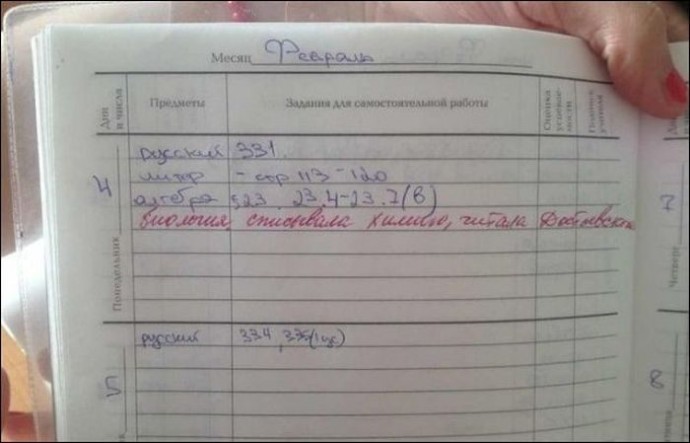 Месяц Февраль
Дни и числа
Предметы
Задания для самостоятельной работы
Оценка успеваемости
Подпись учителя
Понедельник 4
русский 331.
литр - стр 113-120
алгебра §23. 23.4-23.7(В)
биология, списывала химию, читала Достоевского
5
русский 334, 335(1 ус)
7
Четверг
8